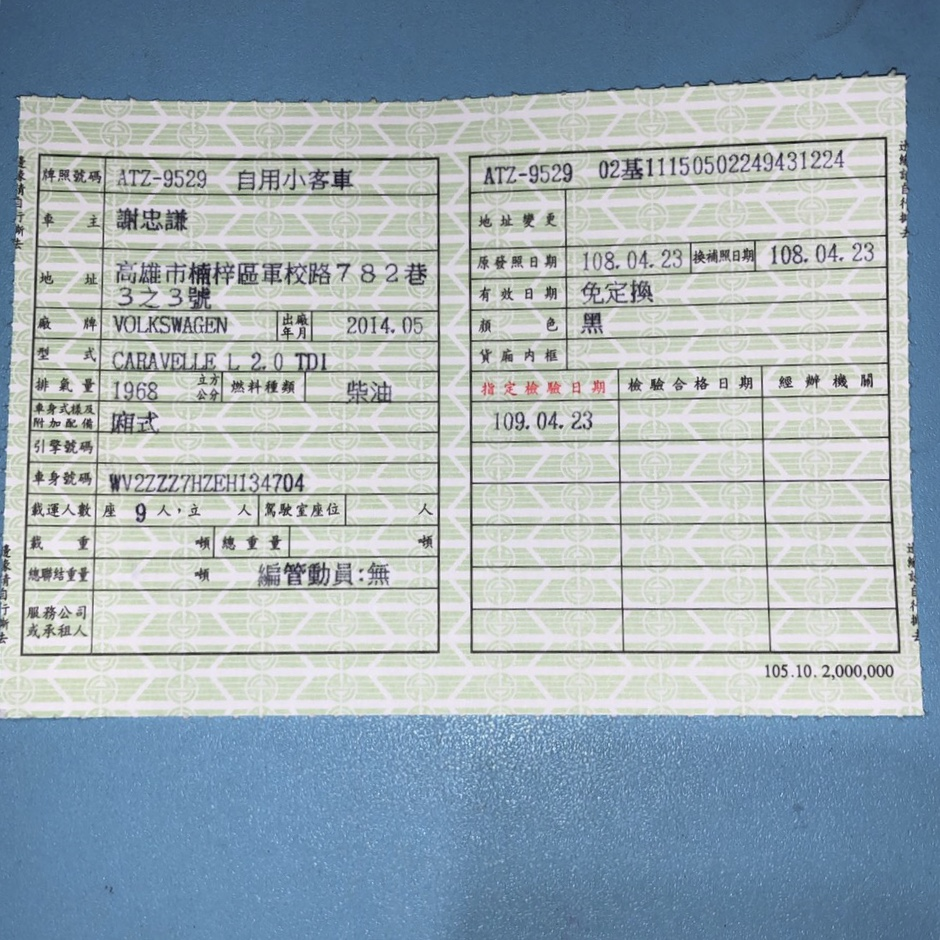 牌照號碼 ATZ-9529 自用小客車
車主 謝忠謙
地址 高雄市楠梓區軍校路782巷
3之3號
廠牌 VOLKSWAGEN 出廠年月 2014.05
型式 CARAVELLE L 2.0 TDI
排氣量 1968 立方公分 燃料種類 柴油
車身式樣及附加配備 廂式
引擎號碼
車身號碼 WV2ZZZ7HZEH134704
載運人數 座 9 人,立 人 駕駛室座位 人
載重 噸 總重量 噸
總聯結重量 噸 編管動員:無
服務公司
或承租人
ATZ-9529 02基11150502249431224
地址變更
原發照日期 108.04.23 換補照日期 108.04.23
有效日期 免定換
顏色 黑
貨廂內框
指定檢驗日期 檢驗合格日期 經辦機關
109.04.23
105.10. 2,000,000